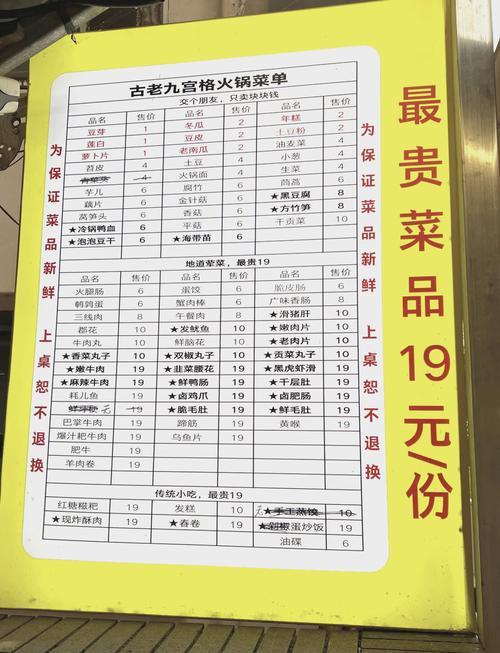 古老九宫格火锅菜单
交个朋友，只卖块块钱
品名 售价 品名 售价 品名 售价
豆芽 1 冬瓜 2 年糕 2
莲白 1 豆皮 2 土豆粉 2
萝卜片 1 老南瓜 2 油麦菜 4
苕皮 4 土豆 4 小葱 4
青菜头 4 火锅面 4 生菜 4
芋儿 6 腐竹 6 茼蒿 6
藕片 6 金针菇 6 ★黑豆腐 8
莴笋头 6 香菇 6 ★方竹笋 8
★冷锅鸭血 6 平菇 6 干贡菜 10
★泡泡豆干 6 ★海带苗 6
地道荤菜，最贵19
品名 售价 品名 售价 品名 售价
火腿肠 6 蛋饺 6 脆皮肠 6
鹌鹑蛋 6 蟹肉棒 6 广味香肠 8
三线肉 8 午餐肉 8 ★滑猪肝 10
郡花 10 ★发鱿鱼 10 ★嫩肉片 10
牛肉丸 10 鲜脑花 10 ★老肉片 10
★香菜丸子 10 ★双椒丸子 10 ★贡菜丸子 10
★嫩牛肉 19 ★韭菜腰花 19 ★黑虎虾滑 19
★麻辣牛肉 19 ★鲜鸭肠 19 ★千层肚 19
耗儿鱼 19 ★卤鸡爪 19 ★卤肥肠 19
无 19 ★脆毛肚 19 ★鲜毛肚 19
巴掌牛肉 19 蹄筋 19 黄喉 19
爆汁粑牛肉 19 乌鱼片 19
肥牛 19
羊肉卷 19
传统小吃，最贵19
红糖糍粑 19 发糕 10 无 ★手工蒸饺 10
★现炸酥肉 19 ★春卷 19 ★剁椒蛋炒饭 19
油碟 6
为保证菜品新鲜 上桌恕不退换
为保证菜品新鲜 上桌恕不退换
最贵菜品19元/份